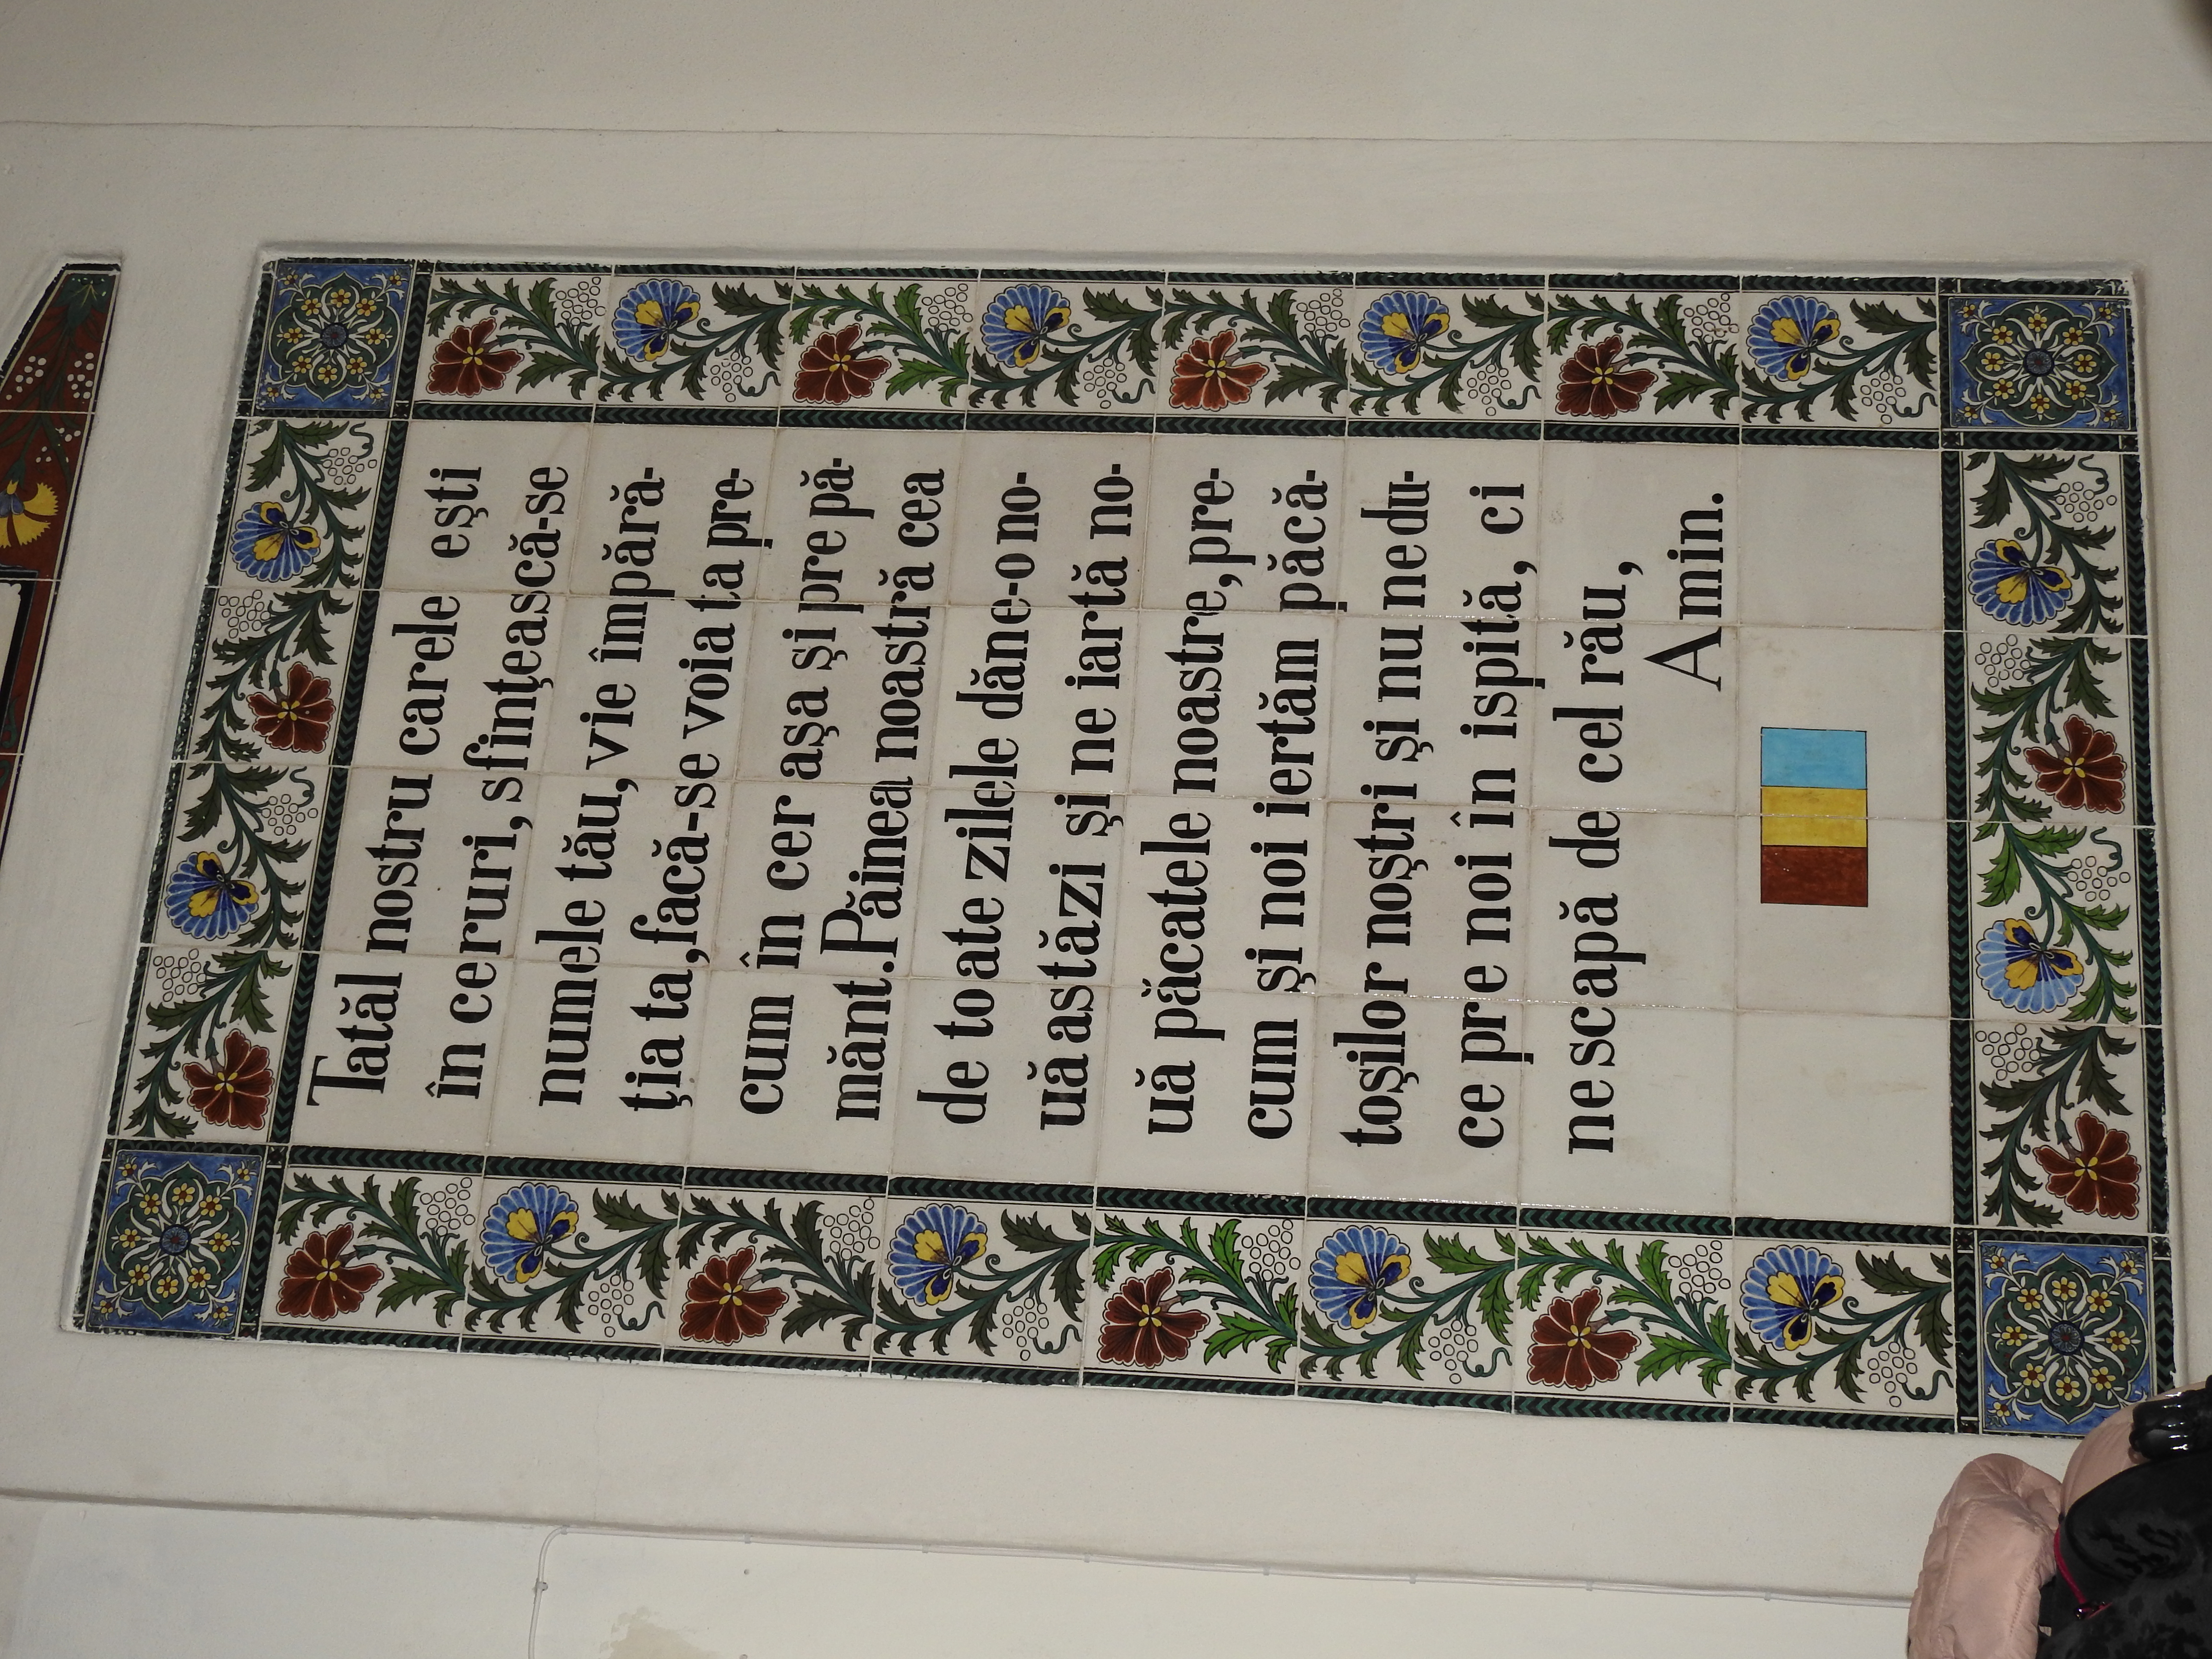 Tatăl nostru carele ești
în ceruri, sfințească-se
numele tău, vie împără-
ția ta, facă-se voia ta pre-
cum în cer așa și pre pă-
mănt. Păinea noastră cea
de toate zilele dăne-o no-
uă astăzi și ne iartă no-
uă păcatele noastre, pre-
cum și noi iertăm păcă-
toșilor noștri și nu ne du-
ce pre noi în ispită, ci
ne scapă de cel rău,
Amin.